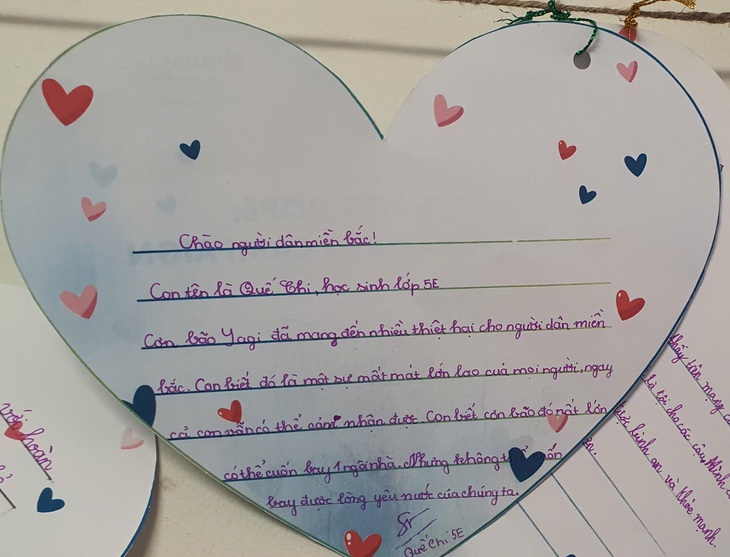 Chào người dân miền bắc!
Con tên là Quế Chi, học sinh lớp 5E
Cơn bão Yagi đã mang đến nhiều thiệt hại cho người dân miền
bắc. Con biết đó là một sự mất mát lớn lao của mọi người, ngay
cả con vẫn có thể cảm nhận được. Con biết cơn bão đó rất lớn
có thể cuốn bay 1 ngôi nhà. Nhưng không ốn
bay được lòng yêu nước của chúng ta.
Quế Chi 5E
với hoàn
bình an và khỏe mạnh.